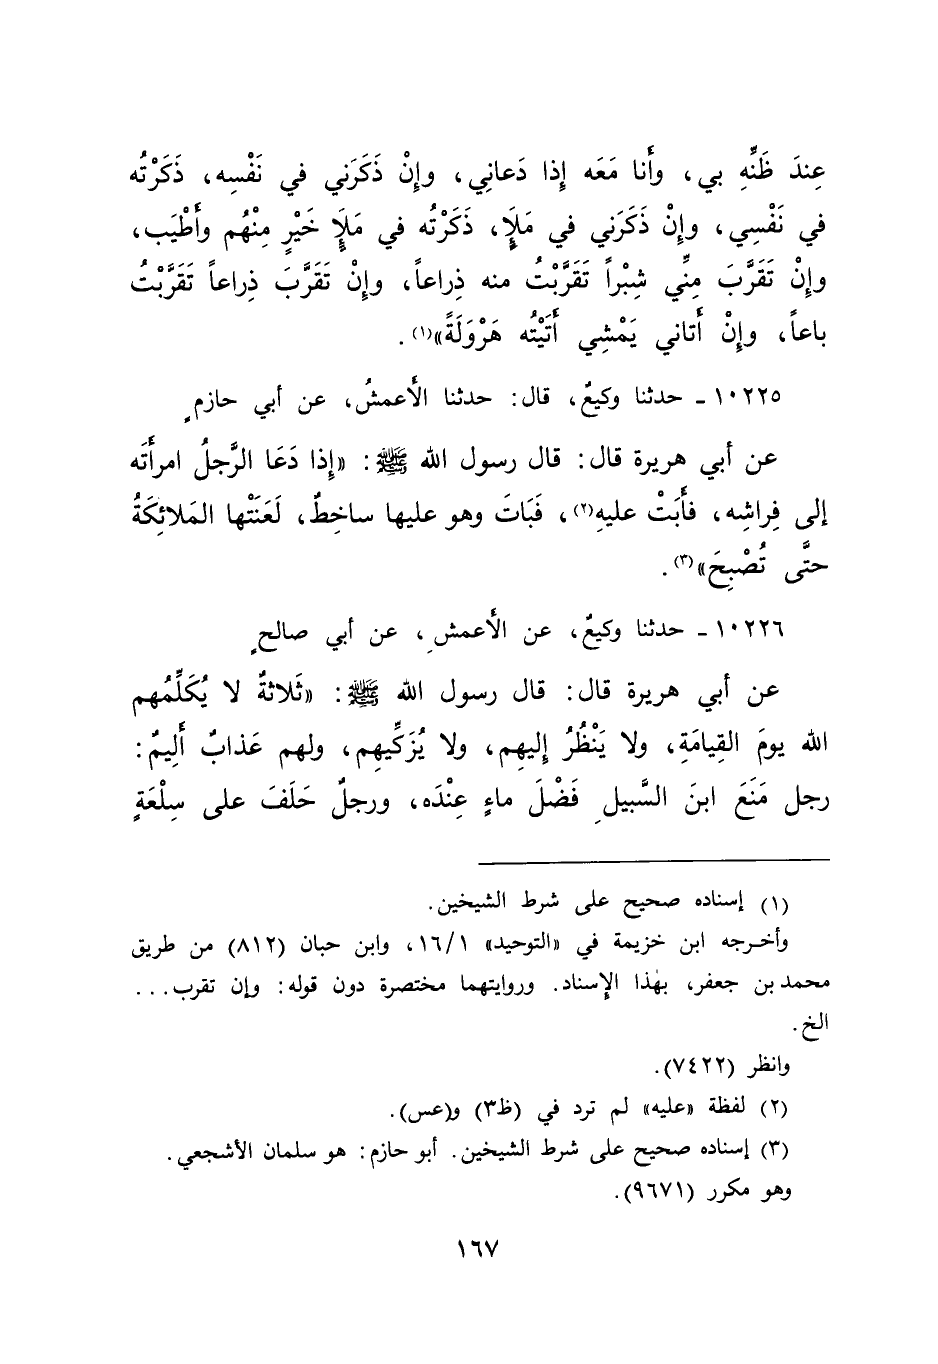 عِندَ ظَنِّهِ بي، وأَنا مَعَه إِذا دَعانِي، وإِنْ ذَكَرَني في نَفْسِه، ذَكَرْتُه
في نَفْسِي، وإِنْ ذَكَرَني في مَلإٍ، ذَكَرْتُه في مَلإٍ خَيْرٍ مِنْهُم وأَطْيَب،
وإِنْ تَقَرَّبَ مِنِّي شِبْراً تَقَرَّبْتُ منه ذِراعاً، وإِنْ تَقَرَّبَ ذِراعاً تَقَرَّبْتُ
باعاً، وإِنْ أَتاني يَمْشِي أَتَيْتُه هَرْوَلَةً»(١).
١٠٢٢٥ - حدثنا وكيعٌ، قال: حدثنا الأَعمشُ، عن أبي حازمٍ
عن أبي هريرة قال: قال رسول الله ﷺ: «إِذا دَعَا الرَّجلُ امرأَتَه
إلى فِراشِه، فأَبَتْ عليهِ(٢)، فَبَاتَ وهو عليها ساخِطٌ، لَعَنَتْها المَلائِكَةُ
حتَّى تُصْبِحَ»(٣).
١٠٢٢٦ - حدثنا وكيعٌ، عن الأَعمشِ، عن أبي صالحٍ
عن أبي هريرة قال: قال رسول الله ﷺ: «ثَلاثةٌ لا يُكَلِّمُهم
الله يومَ القِيامَةِ، ولا يَنْظُرُ إِليهِم، ولا يُزَكِّيهِم، ولهم عَذابٌ أَلِيمٌ:
رجل مَنَعَ ابنَ السَّبيلِ فَضْلَ ماءٍ عِنْدَه، ورجلٌ حَلَفَ على سِلْعَةٍ
(١) إسناده صحيح على شرط الشيخين.
وأخرجه ابن خزيمة في «التوحيد» ١٦/١، وابن حبان (٨١٢) من طريق
محمد بن جعفر، بهٰذا الإسناد. وروايتهما مختصرة دون قوله: وإن تقرب...
الخ.
وانظر (٧٤٢٢).
(٢) لفظة «عليه» لم ترد في (ظ٣) و(عس).
(٣) إسناده صحيح على شرط الشيخين. أبو حازم: هو سلمان الأشجعي.
وهو مكرر (٩٦٧١).
١٦٧